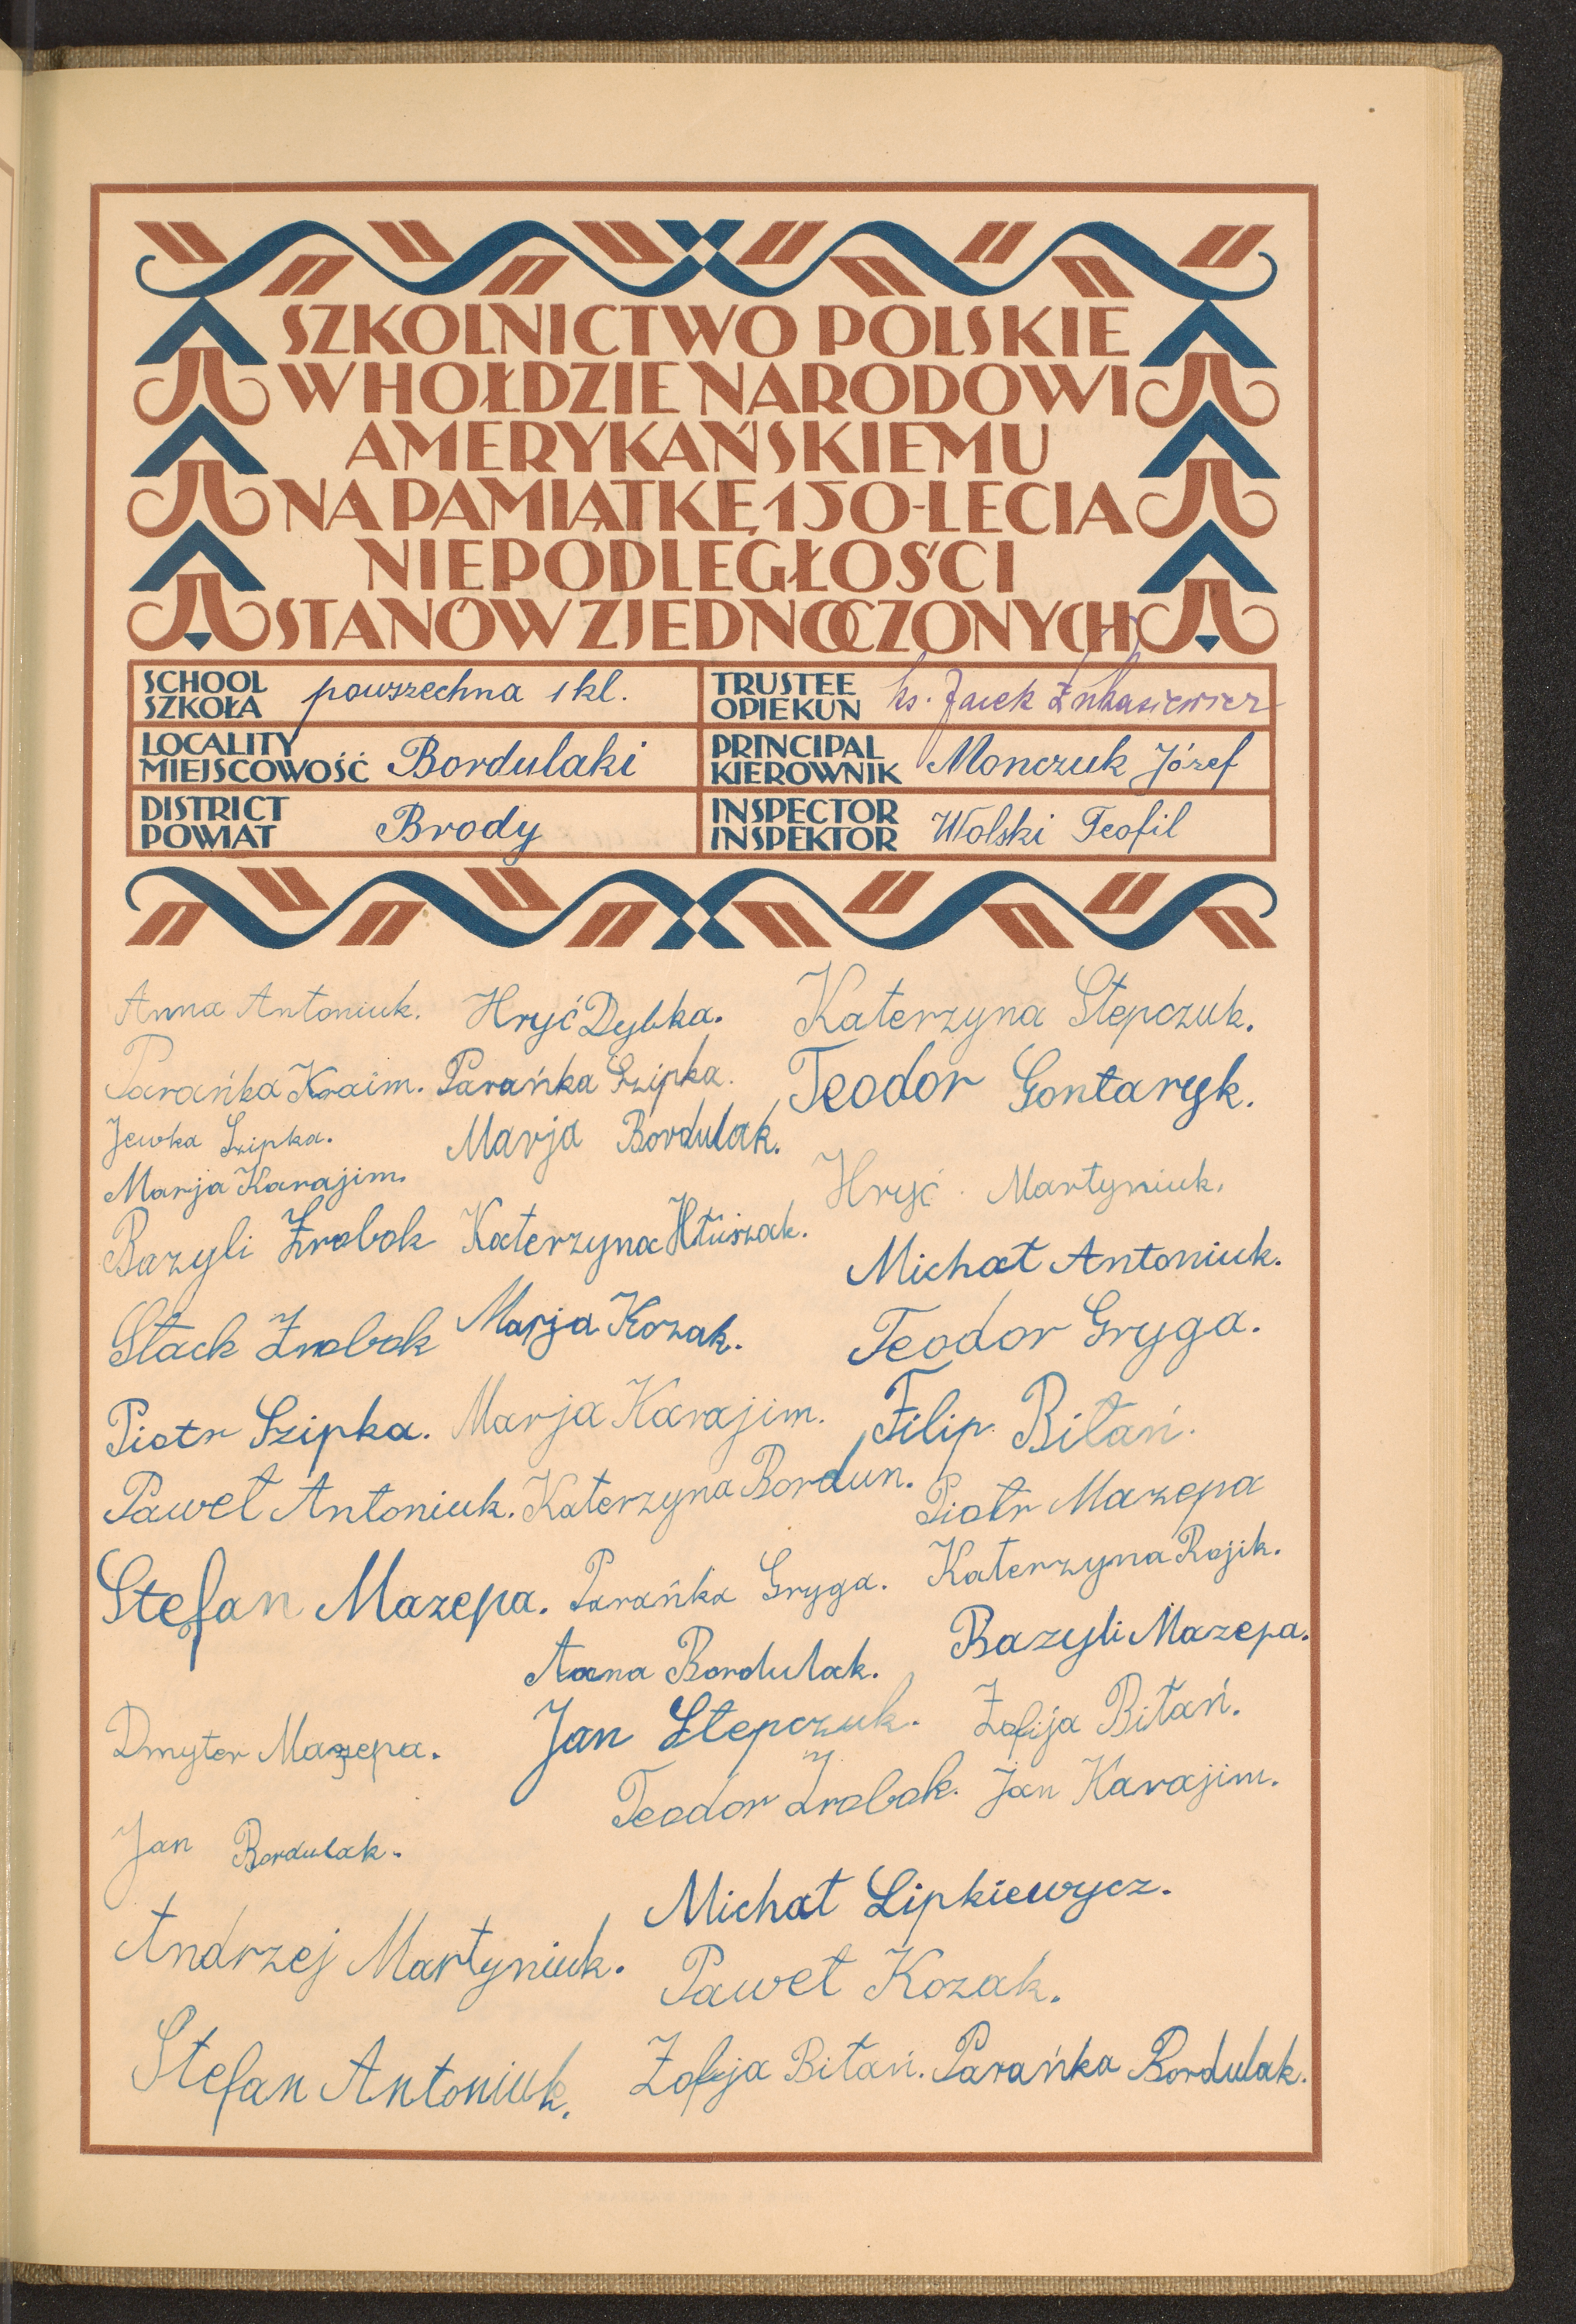 SZKOLNICTWO POLSKIE
W HOŁDZIE NARODOWI
AMERYKAŃSKIEMU
NA PAMIĄTKĘ 150-LECIA
NIEPODLEGŁOŚCI
STANÓW ZJEDNOCZONYCH
SCHOOL
SZKOŁA powszechna 1 kl.
TRUSTEE
OPIEKUN ks. Jacek Łukasiewicz
LOCALITY
MIEJSCOWOŚĆ Bordulaki
PRINCIPAL
KIEROWNIK Monczuk Józef
DISTRICT
POWIAT Brody
INSPECTOR
INSPEKTOR Wolski Teofil
Anna Antoniuk. Hryć Dybka. Katerzyna Stepczuk.
Parańka Kraim. Parańka Szipka. Teodor Gontaryk.
Jewka Szipka. Marja Bordulak.
Marja Karajim. Hryć Martyniuk.
Bazyli Żrobok Katerzyna Hłuszak. Michał Antoniuk.
Stach Żrobok Marja Kozak. Teodor Gryga.
Piotr Szipka. Marja Karajim. Filip Biłań.
Paweł Antoniuk. Katerzyna Bordun. Piotr Mazepa
Stefan Mazepa. Parańka Gryga. Katerzyna Rojik.
Anna Bordulak. Bazyli Mazepa.
Dmyter Mazepa. Jan Stepczuk. Zofija Biłań.
Teodor Żrobok. Jan Karajim.
Jan Bordulak.
Michał Lipkiewycz.
Andrzej Martyniuk. Paweł Kozak.
Stefan Antoniuk. Zofja Biłań. Parańka Bordulak.